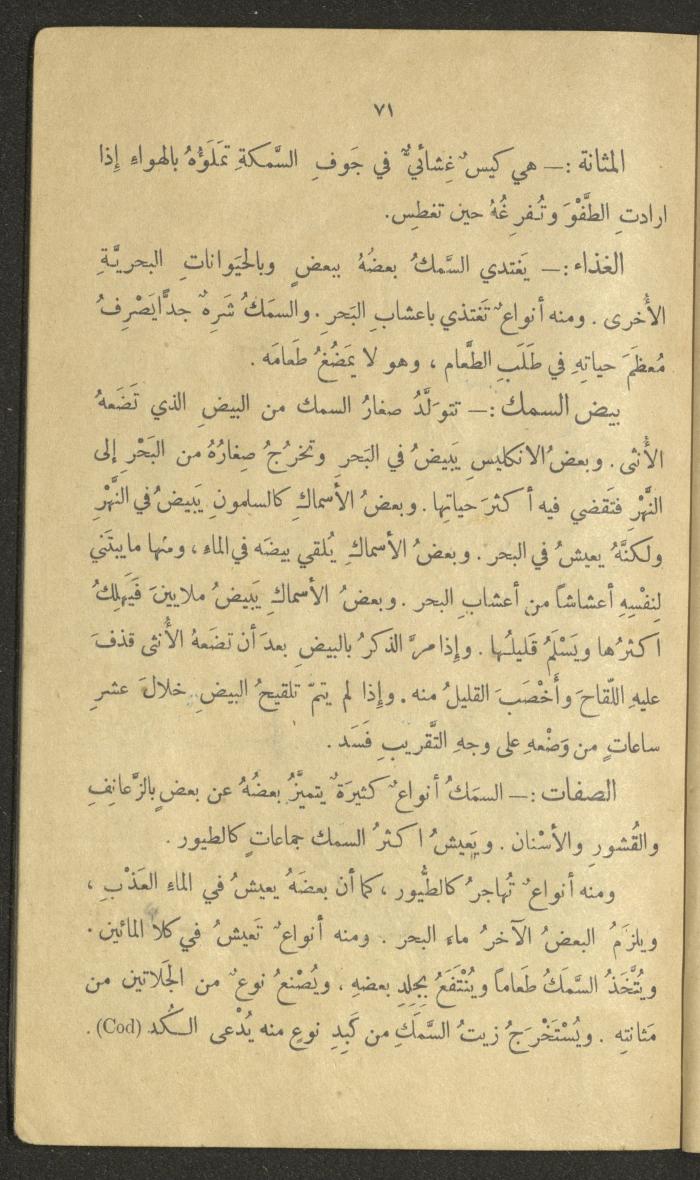 ٧١
المثانة :— هي كيسٌ غِشائيٌّ في جَوفِ السَّمكةِ تَملَؤُهُ بالهواءِ إذا
ارادتِ الطَّفْوَ وتُفرِغُهُ حين تغطِس.
الغذاء :— يَغتدي السَّمكُ بعضُهُ ببعضٍ وبالحَيَواناتِ البحريَّةِ
الأُخرى . ومنه أنواعٌ تَغتذي باعشابِ البَحرِ . والسمَكُ شَرِهٌ جدًّا يَصْرِفُ
مُعظَمَ حياتِهِ في طَلَبِ الطَّعام ، وهو لا يَمضُغُ طَعامَه .
بيض السمك :— تتوَلَّدُ صغارُ السمك من البيضِ الذي تَضَعهُ
الأُنثى . وبعضُ الانكليسِ يَبيضُ في البَحر وتخرُجُ صِغارُهُ من البَحْرِ إلى
النَّهْرِ فتَقضي فيه أكثرَ حياتِها . وبعضُ الأسماكِ كالسلمونِ يَبيضُ في النَّهْرِ
ولكنَّهُ يعيشُ في البحر . وبعضُ الأسماكِ يُلقي بيضَه في الماءِ ، ومنها ما يبتَني
لِنفْسِهِ أعشاشاً من أعشابِ البحر . وبعضُ الأسماكِ يَبيضُ ملايينَ فَيَهلِكُ
اكثرُها ويَسْلَمُ قَليلُها . وإذا مرَّ الذكرُ بالبيضِ بعدَ أن تضَعهُ الأُنثى قذفَ
عليهِ اللّقاحَ وأَخْصَبَ القليلُ منه . وإذا لم يتمّ تلقيحُ البيضِ خلالَ عشرِ
ساعاتٍ من وَضْعهِ على وجهِ التَّقريبِ فَسَد .
الصفات :— السمَكُ أنواعٌ كثيرَةٌ يتميَّزُ بعضُهُ عن بعضٍ بالزَّعانِفِ
والقُشورِ والأسْنان . ويَعيشُ اكثرُ السمك جماعاتٍ كالطيور .
ومنه أنواعٌ تُهاجرُ كالطُّيور ، كما أن بعضَهُ يعيشُ في الماءِ العَذْبِ ،
ويلزَمُ البعضُ الآخرُ ماءَ البحر . ومنه أنواعٌ تَعيشُ في كلا المائين .
ويُتَّخَذُ السَّمَكُ طَعاماً ويُنْتَفَعُ بِجِلدِ بعضهِ ، ويُصْنعُ نوعٌ من الجَلاتين من
مَثانتهِ . ويُسْتَخْرَجُ زيتُ السَّمَكِ من كَبِدِ نوعٍ منه يُدْعى الـكُد (Cod) .